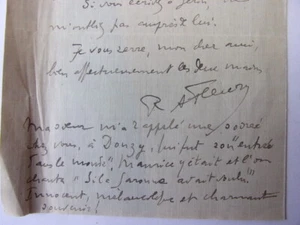 Si vous écrivez à
m'oubliez pas auprès de lui.
Je vous serre, mon cher ami,
bien affectueusement les deux mains
R
Ma soeur m'a rappelé une soirée
chez vous, à Donzy, qui fut son "entrée
dans le monde". Maurice y était et l'on
chanta "Si la Garonne avait voulu"
Innocent, mélancolique et charmant
souvenir!